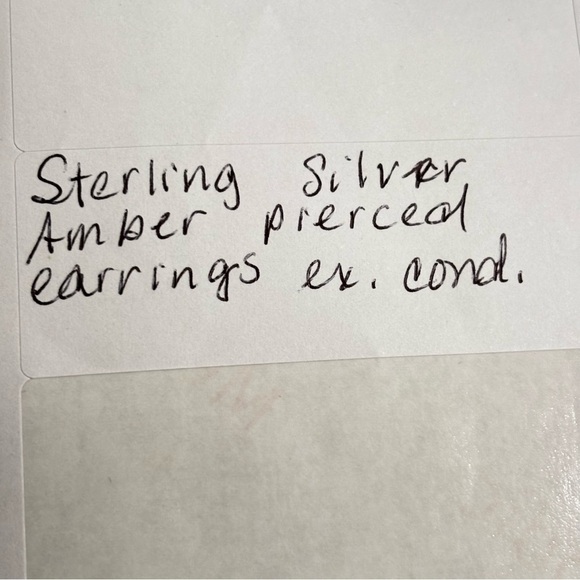 Sterling Silver
Amber pierced
earrings ex. cond.